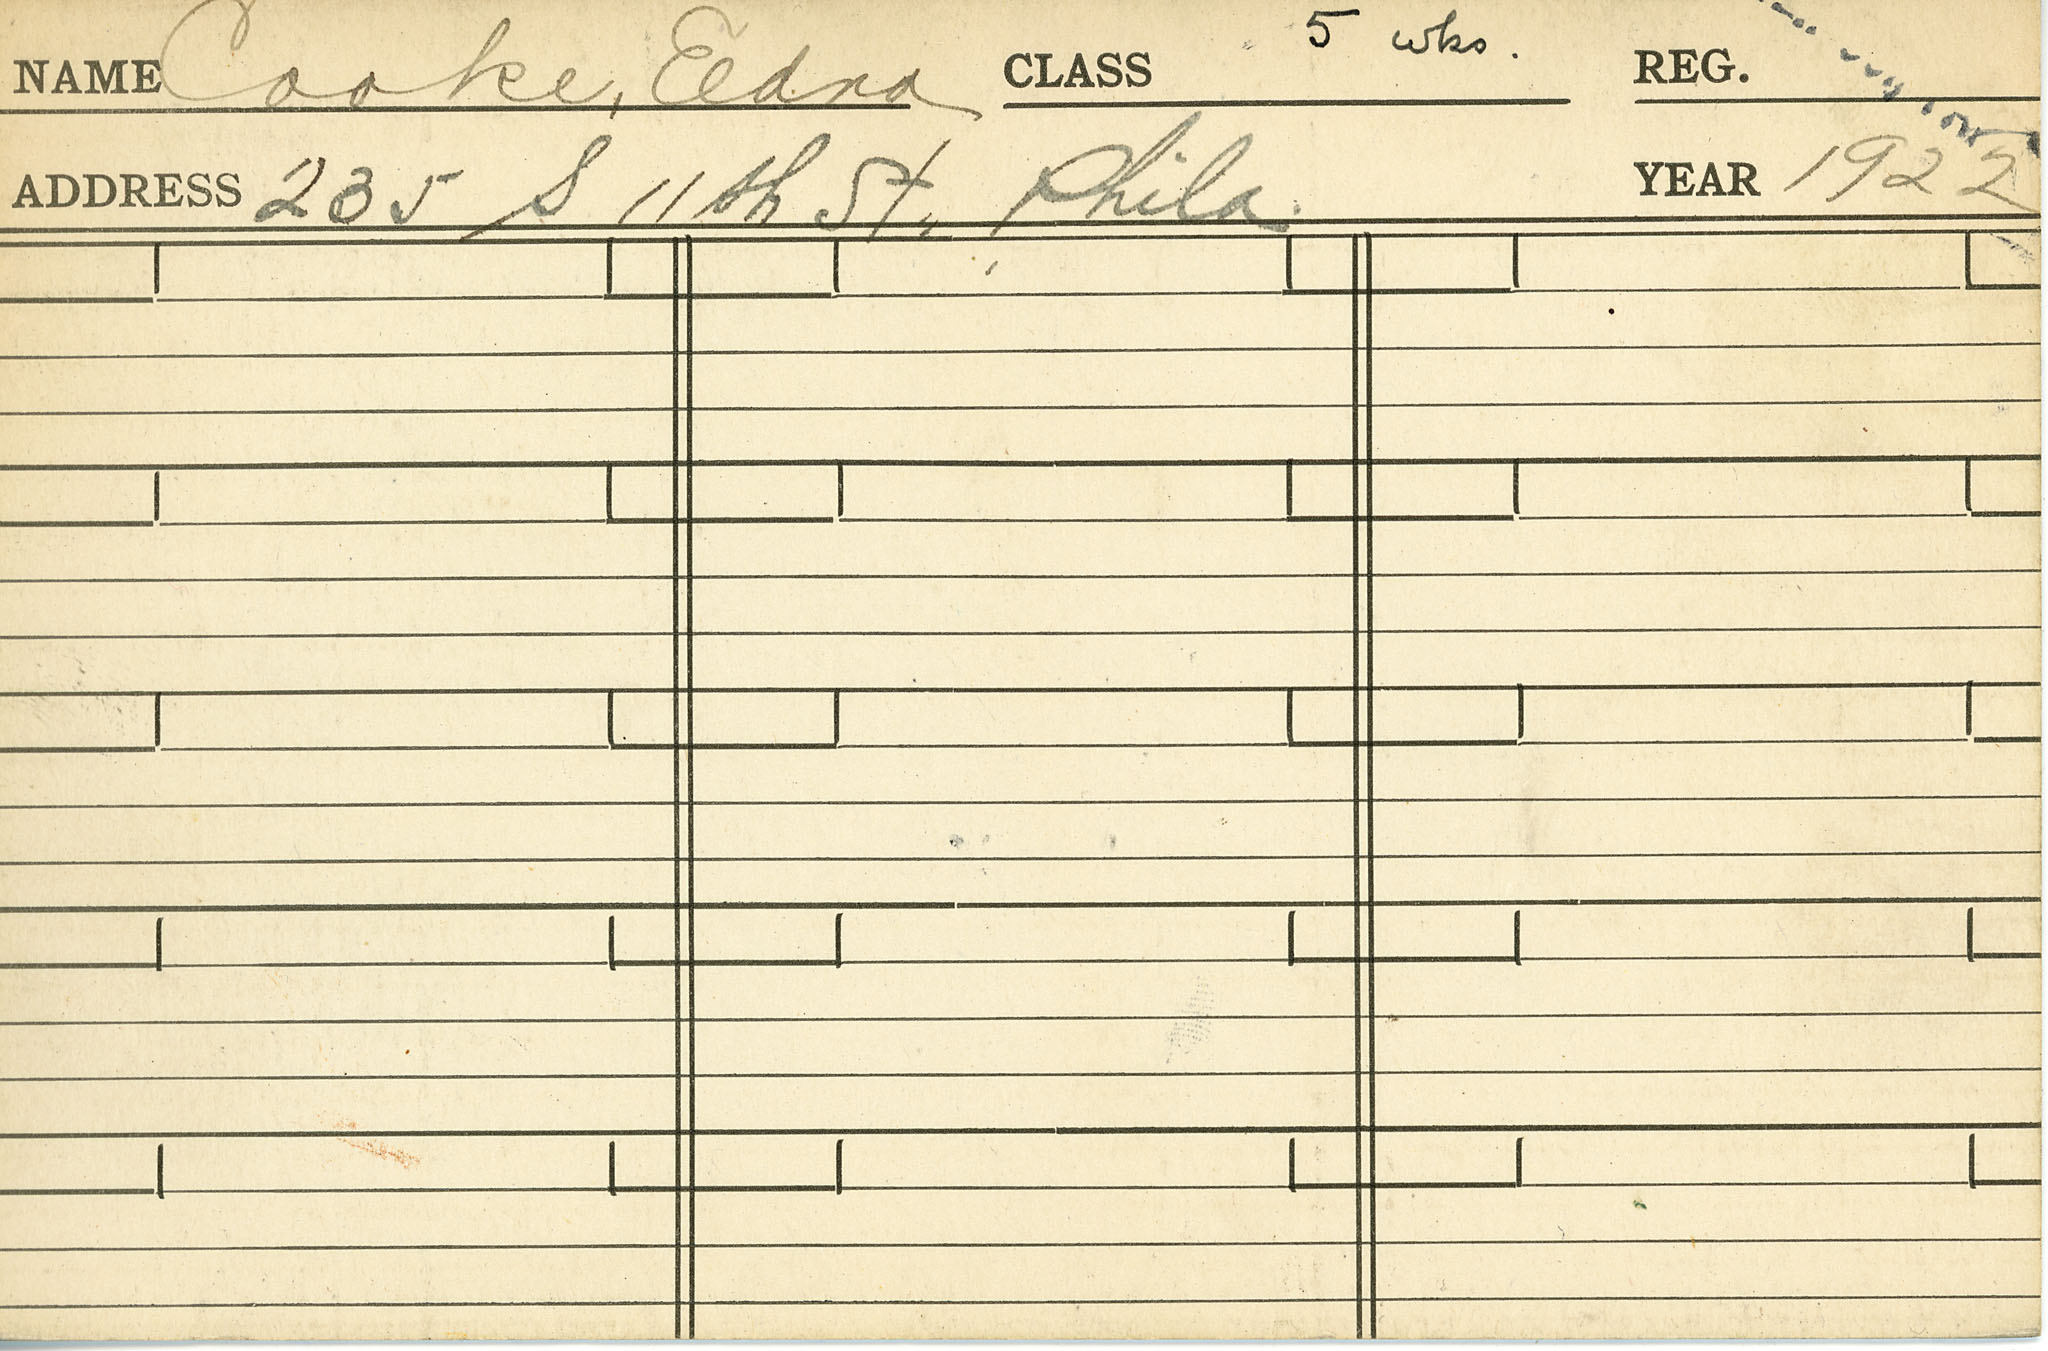 NAME Cooke, Edna CLASS 5 wks. REG.
ADDRESS 235 S 11th St., Phila. YEAR 1922